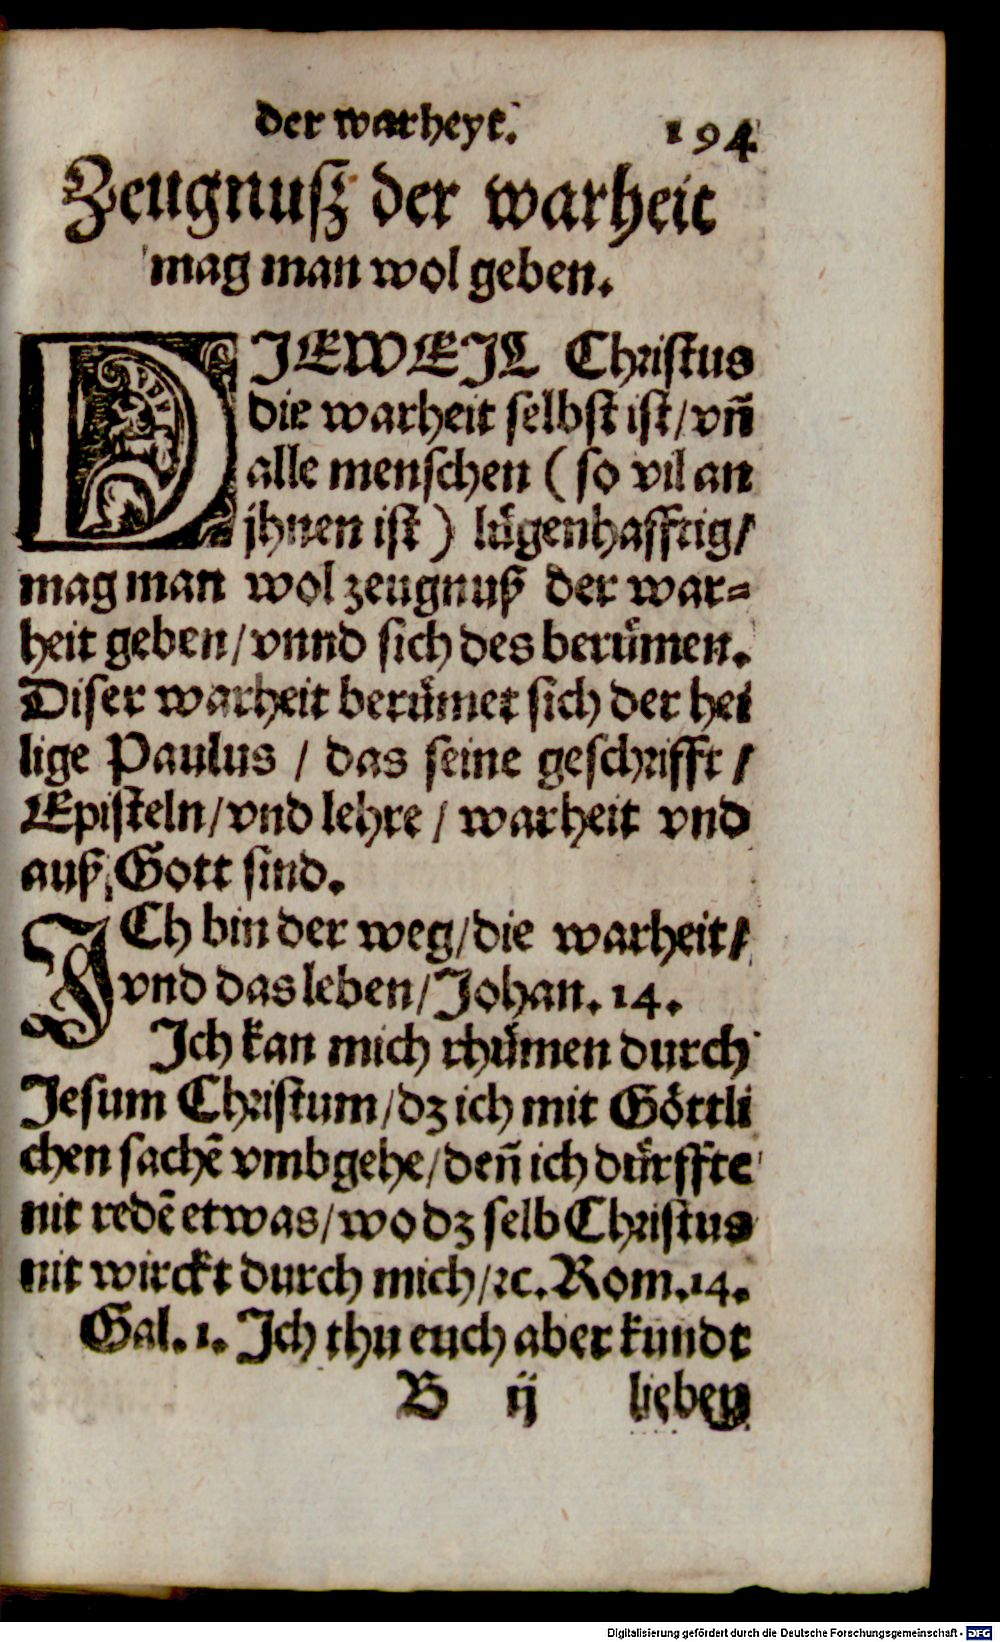 der warheyt. 194
Zeugnusz der warheit
mag man wol geben.
DIEWEIL Christus
die warheit selbst ist/ vñ
alle menschen ( so vil an
jhnen ist ) lůgenhafftig/
mag man wol zeugnuß der war=
heit geben/ vnnd sich des berůmen.
Diser warheit berůmet sich der hei
lige Paulus / das seine geschrifft /
Episteln/ vnd lehre / warheit vnd
auß Gott sind.
ICh bin der weg/ die warheit/
vnd das leben/ Johan. 14.
Ich kan mich rhůmen durch
Jesum Christum/ dz ich mit Göttli
chen sachẽ vmbgehe/ deñ ich dürffte
nit redẽ etwas/ wo dz selb Christus
nit wirckt durch mich/ ꝛc. Rom. 14.
Gal. 1. Ich thu euch aber kundt
B ij lieben
Digitalisierung gefördert durch die Deutsche Forschungsgemeinschaft - DFG